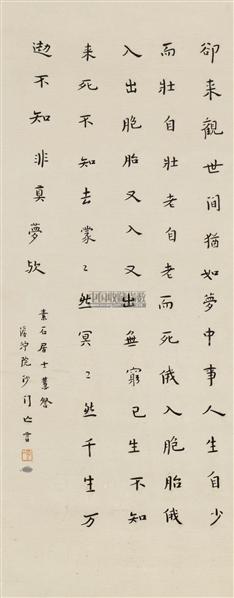 卻来觀世間猶如夢中事人生自少
而壯自壯老自老而死俄入胞胎俄
入出胞胎又入又出無窮已生不知
来死不知去蒙〻然冥〻然千生万
劫不知非真夢欤
素石居士慧督
沙门